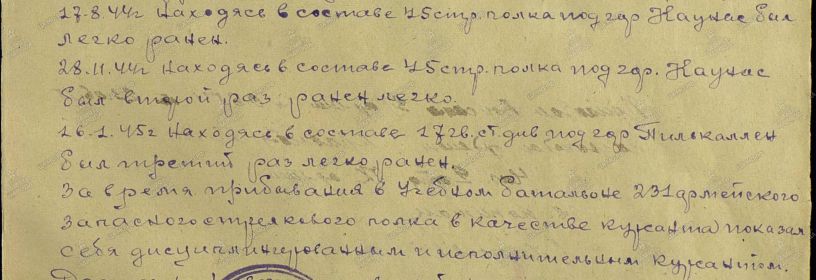 17.8.44г Находясь в составе 45 стр. полка под гор Каунас был
легко ранен.
28.11.44г Находясь в составе 45 стр. полка под гор. Каунас
был второй раз ранен легко.
16.1.45г Находясь в составе 17 гв. ст. див под гор Пилькаллен
был третий раз легко ранен.
За время прибывания в Учебном батальоне 231 армейского
запасного стрелкового полка в качестве курсанта показал
себя дисциплингерованным и исполнительным курсантом.